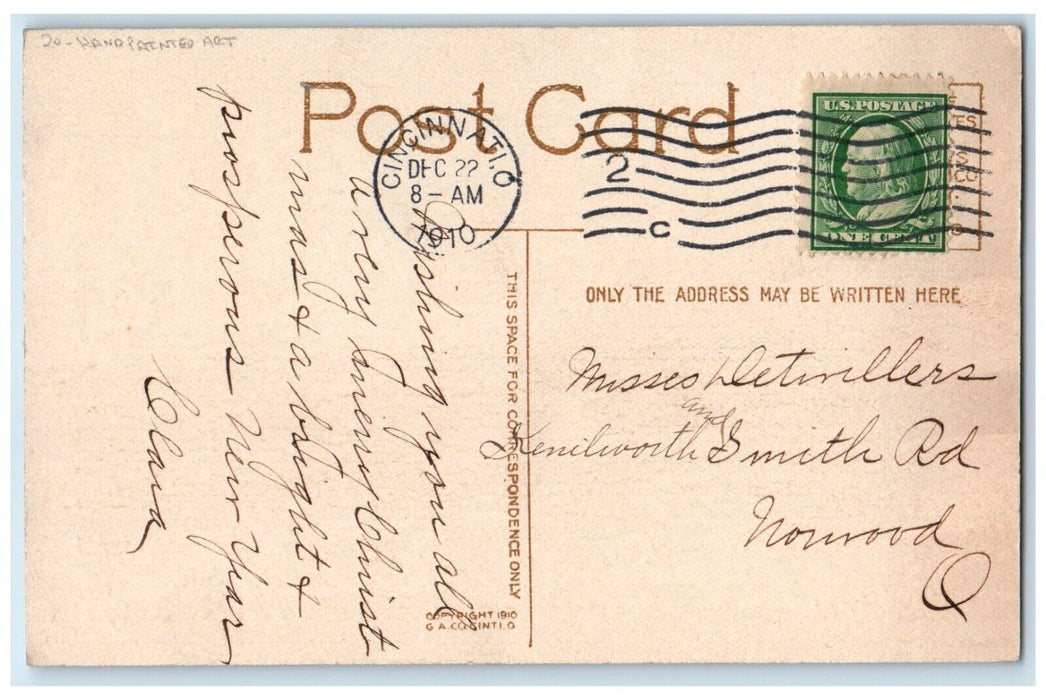 20-HAND PAINTED ART
Post Card
CINCINNATI, O
DEC 22
8-AM
1910
2
C
U.S. POSTAGE
ONE CENT
THIS SPACE FOR CORRESPONDENCE ONLY
ONLY THE ADDRESS MAY BE WRITTEN HERE
Wishing you all
a very merry Christ
mas & a bright &
prosperous New Year
Clara
Misses Detwillers
and
Kenilworth Smith Rd
Norwood
O
COPYRIGHT 1910
G. A. CO CINTI. O